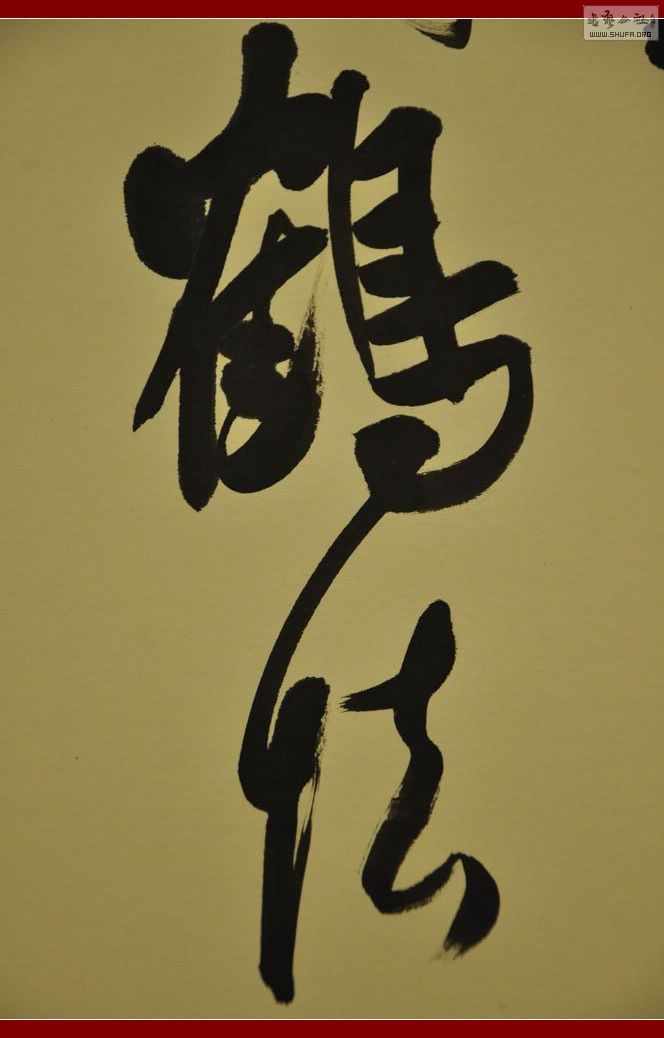 書藝公社
WWW.SHUFA.ORG
鶴
怯